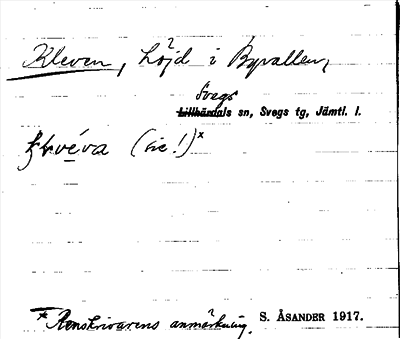 Kleven, höjd i Byvallen,
Svegs
Lillhärdals sn, Svegs tg, Jämtl. l.
(sic!)*
* Renskrivarens anmärkning. S. ÅSANDER 1917.